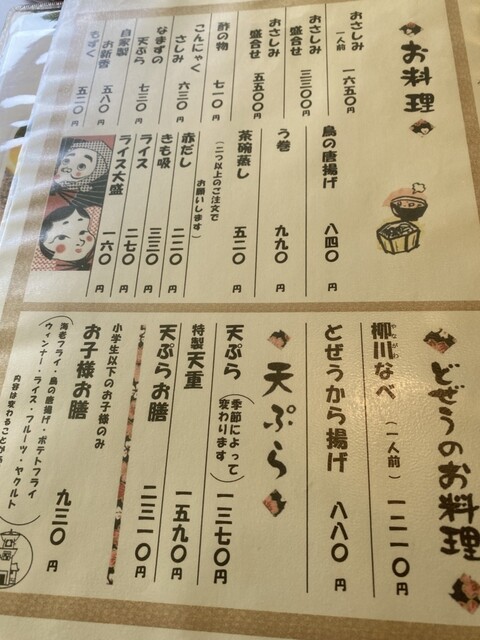 お料理
おさしみ 一人前 一六五〇円
おさしみ盛合せ 三三〇〇円
おさしみ盛合せ 五五〇〇円
酢の物 七一〇円
こんにゃくさしみ 六三〇円
なまずの天ぷら 七三〇円
自家製お新香 五八〇円
もずく 五二〇円
鳥の唐揚げ 八四〇円
う巻 九九〇円
茶碗蒸し 五二〇円
(二つ以上のご注文で
お願いします)
赤だし 二二〇円
きも吸 三三〇円
ライス 二七〇円
ライス大盛 一六〇円
どぜうのお料理
柳川なべ(一人前) 一二一〇円
やながわ
どぜうから揚げ 八八〇円
天ぷら
天ぷら(季節によって変わります) 一三七〇円
特製天重 一五九〇円
天ぷらお膳 二三一〇円
小学生以下のお子様のみ
お子様お膳 九三〇円
(海老フライ・鳥の唐揚げ・ポテトフライ
ウィンナー・ライス・フルーツ・ヤクルト)
内容は変わることが